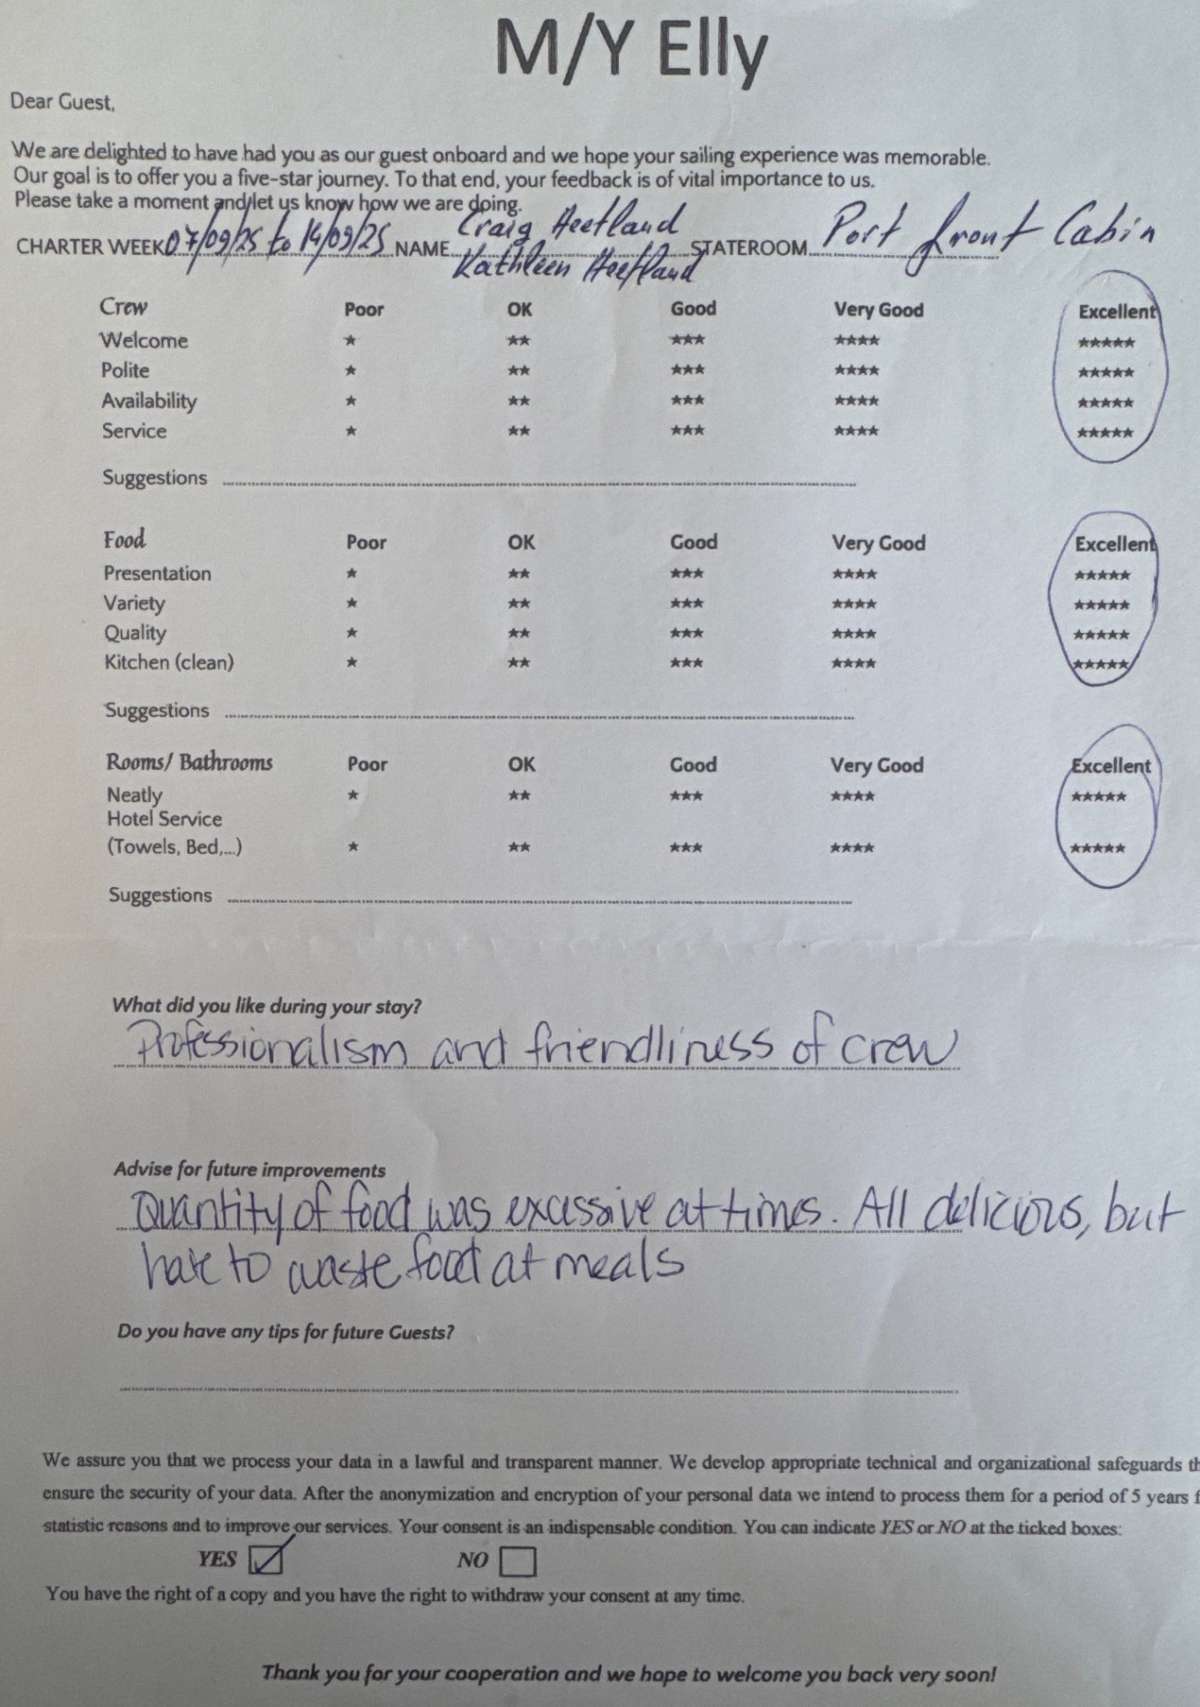 M/Y Elly
Dear Guest,
We are delighted to have had you as our guest onboard and we hope your sailing experience was memorable.
Our goal is to offer you a five-star journey. To that end, your feedback is of vital importance to us.
Please take a moment and let us know how we are doing.
CHARTER WEEK 07/09/25 to 14/09/25 NAME Craig Heetland STATEROOM Port front Cabin
Kathleen Heetland
Crew Poor OK Good Very Good Excellent
Welcome ★ ★★ ★★★ ★★★★ ★★★★★
Polite ★ ★★ ★★★ ★★★★ ★★★★★
Availability ★ ★★ ★★★ ★★★★ ★★★★★
Service ★ ★★ ★★★ ★★★★ ★★★★★
Suggestions
Food Poor OK Good Very Good Excellent
Presentation ★ ★★ ★★★ ★★★★ ★★★★★
Variety ★ ★★ ★★★ ★★★★ ★★★★★
Quality ★ ★★ ★★★ ★★★★ ★★★★★
Kitchen (clean) ★ ★★ ★★★ ★★★★ ★★★★★
Suggestions
Rooms/ Bathrooms Poor OK Good Very Good Excellent
Neatly ★ ★★ ★★★ ★★★★ ★★★★★
Hotel Service
(Towels, Bed,...) ★ ★★ ★★★ ★★★★ ★★★★★
Suggestions
What did you like during your stay?
Professionalism and friendliness of crew
Advise for future improvements
Quantity of food was excessive at times. All delicious, but
hate to waste food at meals
Do you have any tips for future Guests?
We assure you that we process your data in a lawful and transparent manner. We develop appropriate technical and organizational safeguards th
ensure the security of your data. After the anonymization and encryption of your personal data we intend to process them for a period of 5 years f
statistic reasons and to improve our services. Your consent is an indispensable condition. You can indicate YES or NO at the ticked boxes:
YES ☑ NO ☐
You have the right of a copy and you have the right to withdraw your consent at any time.
Thank you for your cooperation and we hope to welcome you back very soon!